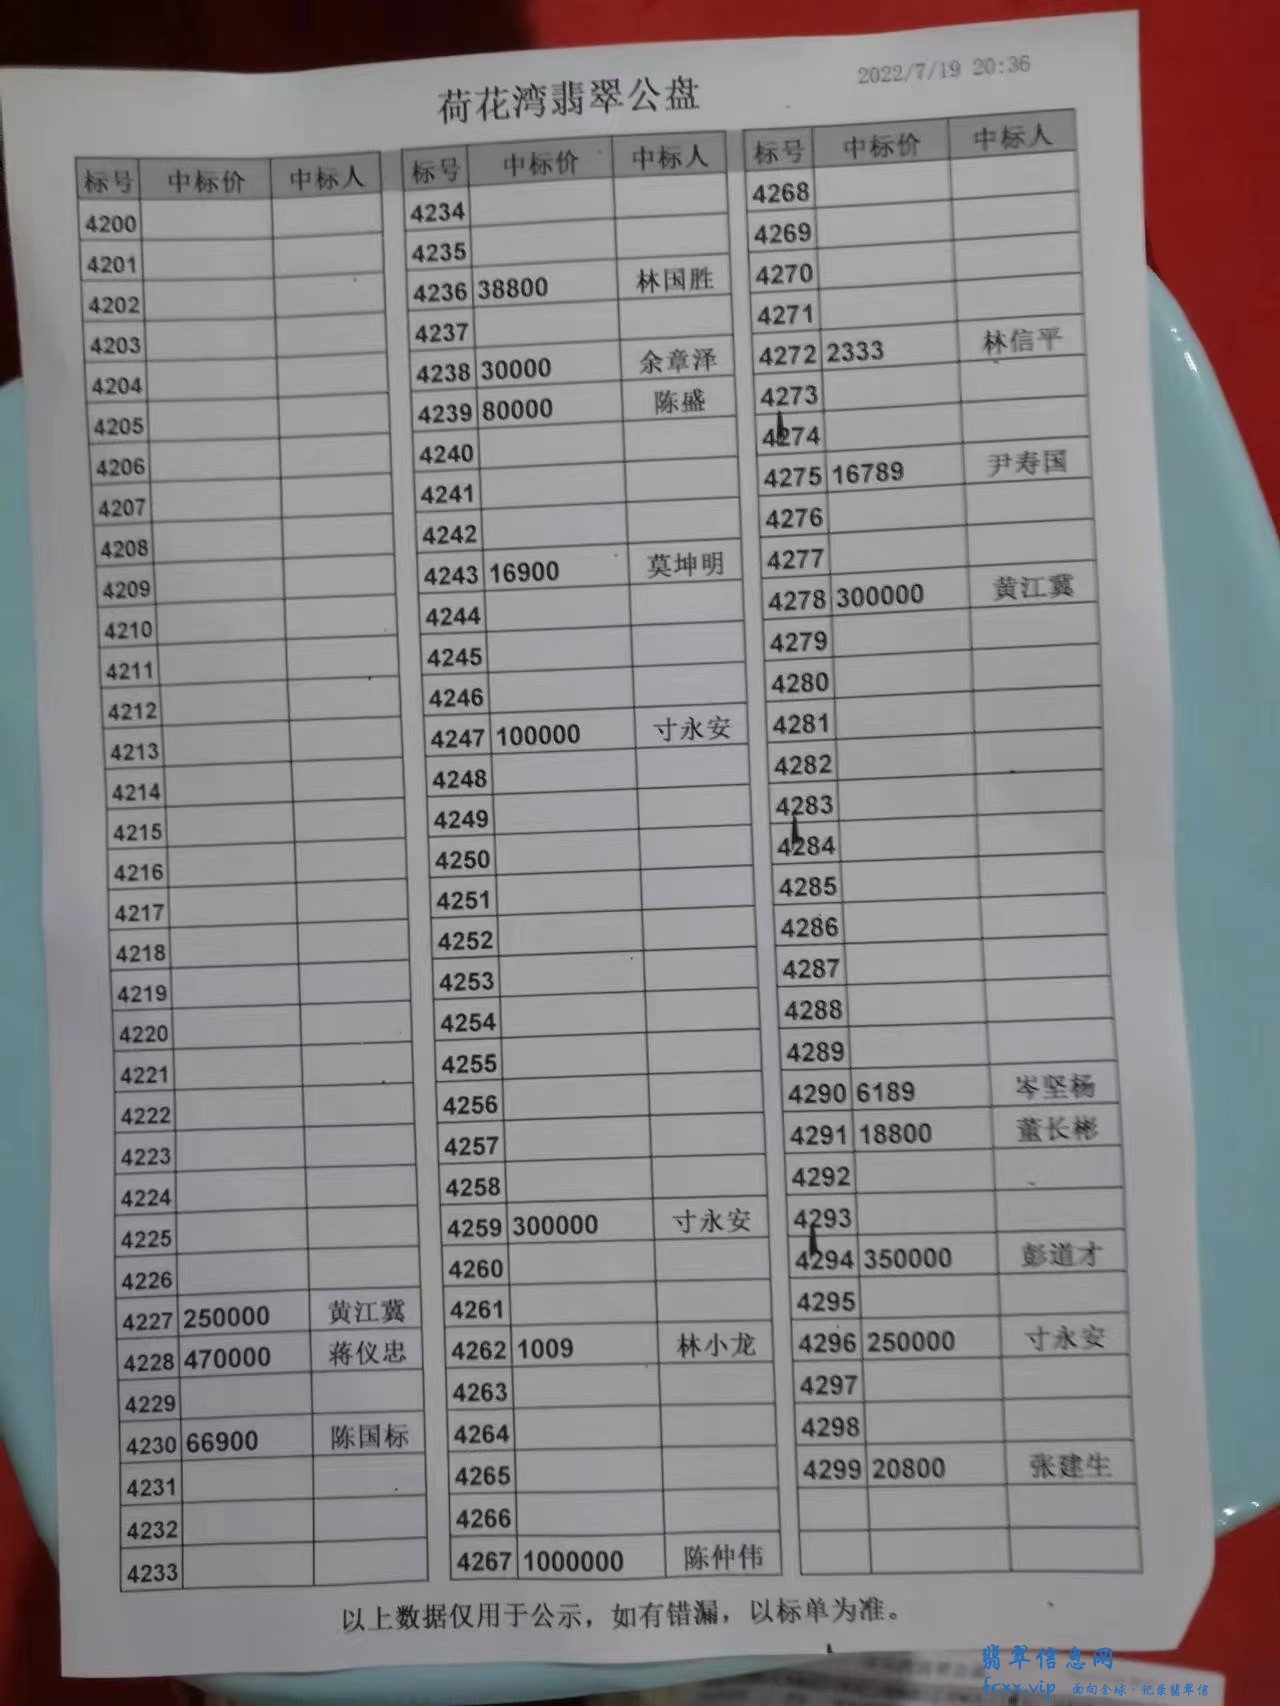 荷花湾翡翠公盘
2022/7/19 20:36
标号 中标价 中标人 标号 中标价 中标人 标号 中标价 中标人
4200 4234 4268
4201 4235 4269
4202 4236 38800 林国胜 4270
4203 4237 4271
4204 4238 30000 余章泽 4272 2333 林信平
4205 4239 80000 陈盛 4273
4206 4240 4274
4207 4241 4275 16789 尹寿国
4208 4242 4276
4209 4243 16900 莫坤明 4277
4210 4244 4278 300000 黄江冀
4211 4245 4279
4212 4246 4280
4213 4247 100000 寸永安 4281
4214 4248 4282
4215 4249 4283
4216 4250 4284
4217 4251 4285
4218 4252 4286
4219 4253 4287
4220 4254 4288
4221 4255 4289
4222 4256 4290 6189 岑坚杨
4223 4257 4291 18800 董长彬
4224 4258 4292
4225 4259 300000 寸永安 4293
4226 4260 4294 350000 彭道才
4227 250000 黄江冀 4261 4295
4228 470000 蒋仪忠 4262 1009 林小龙 4296 250000 寸永安
4229 4263 4297
4230 66900 陈国标 4264 4298
4231 4265 4299 20800 张建生
4232 4266
4233 4267 1000000 陈仲伟
以上数据仅用于公示，如有错漏，以标单为准。
翡翠信息网
fcxx.vip 面向全球·记录翡翠信